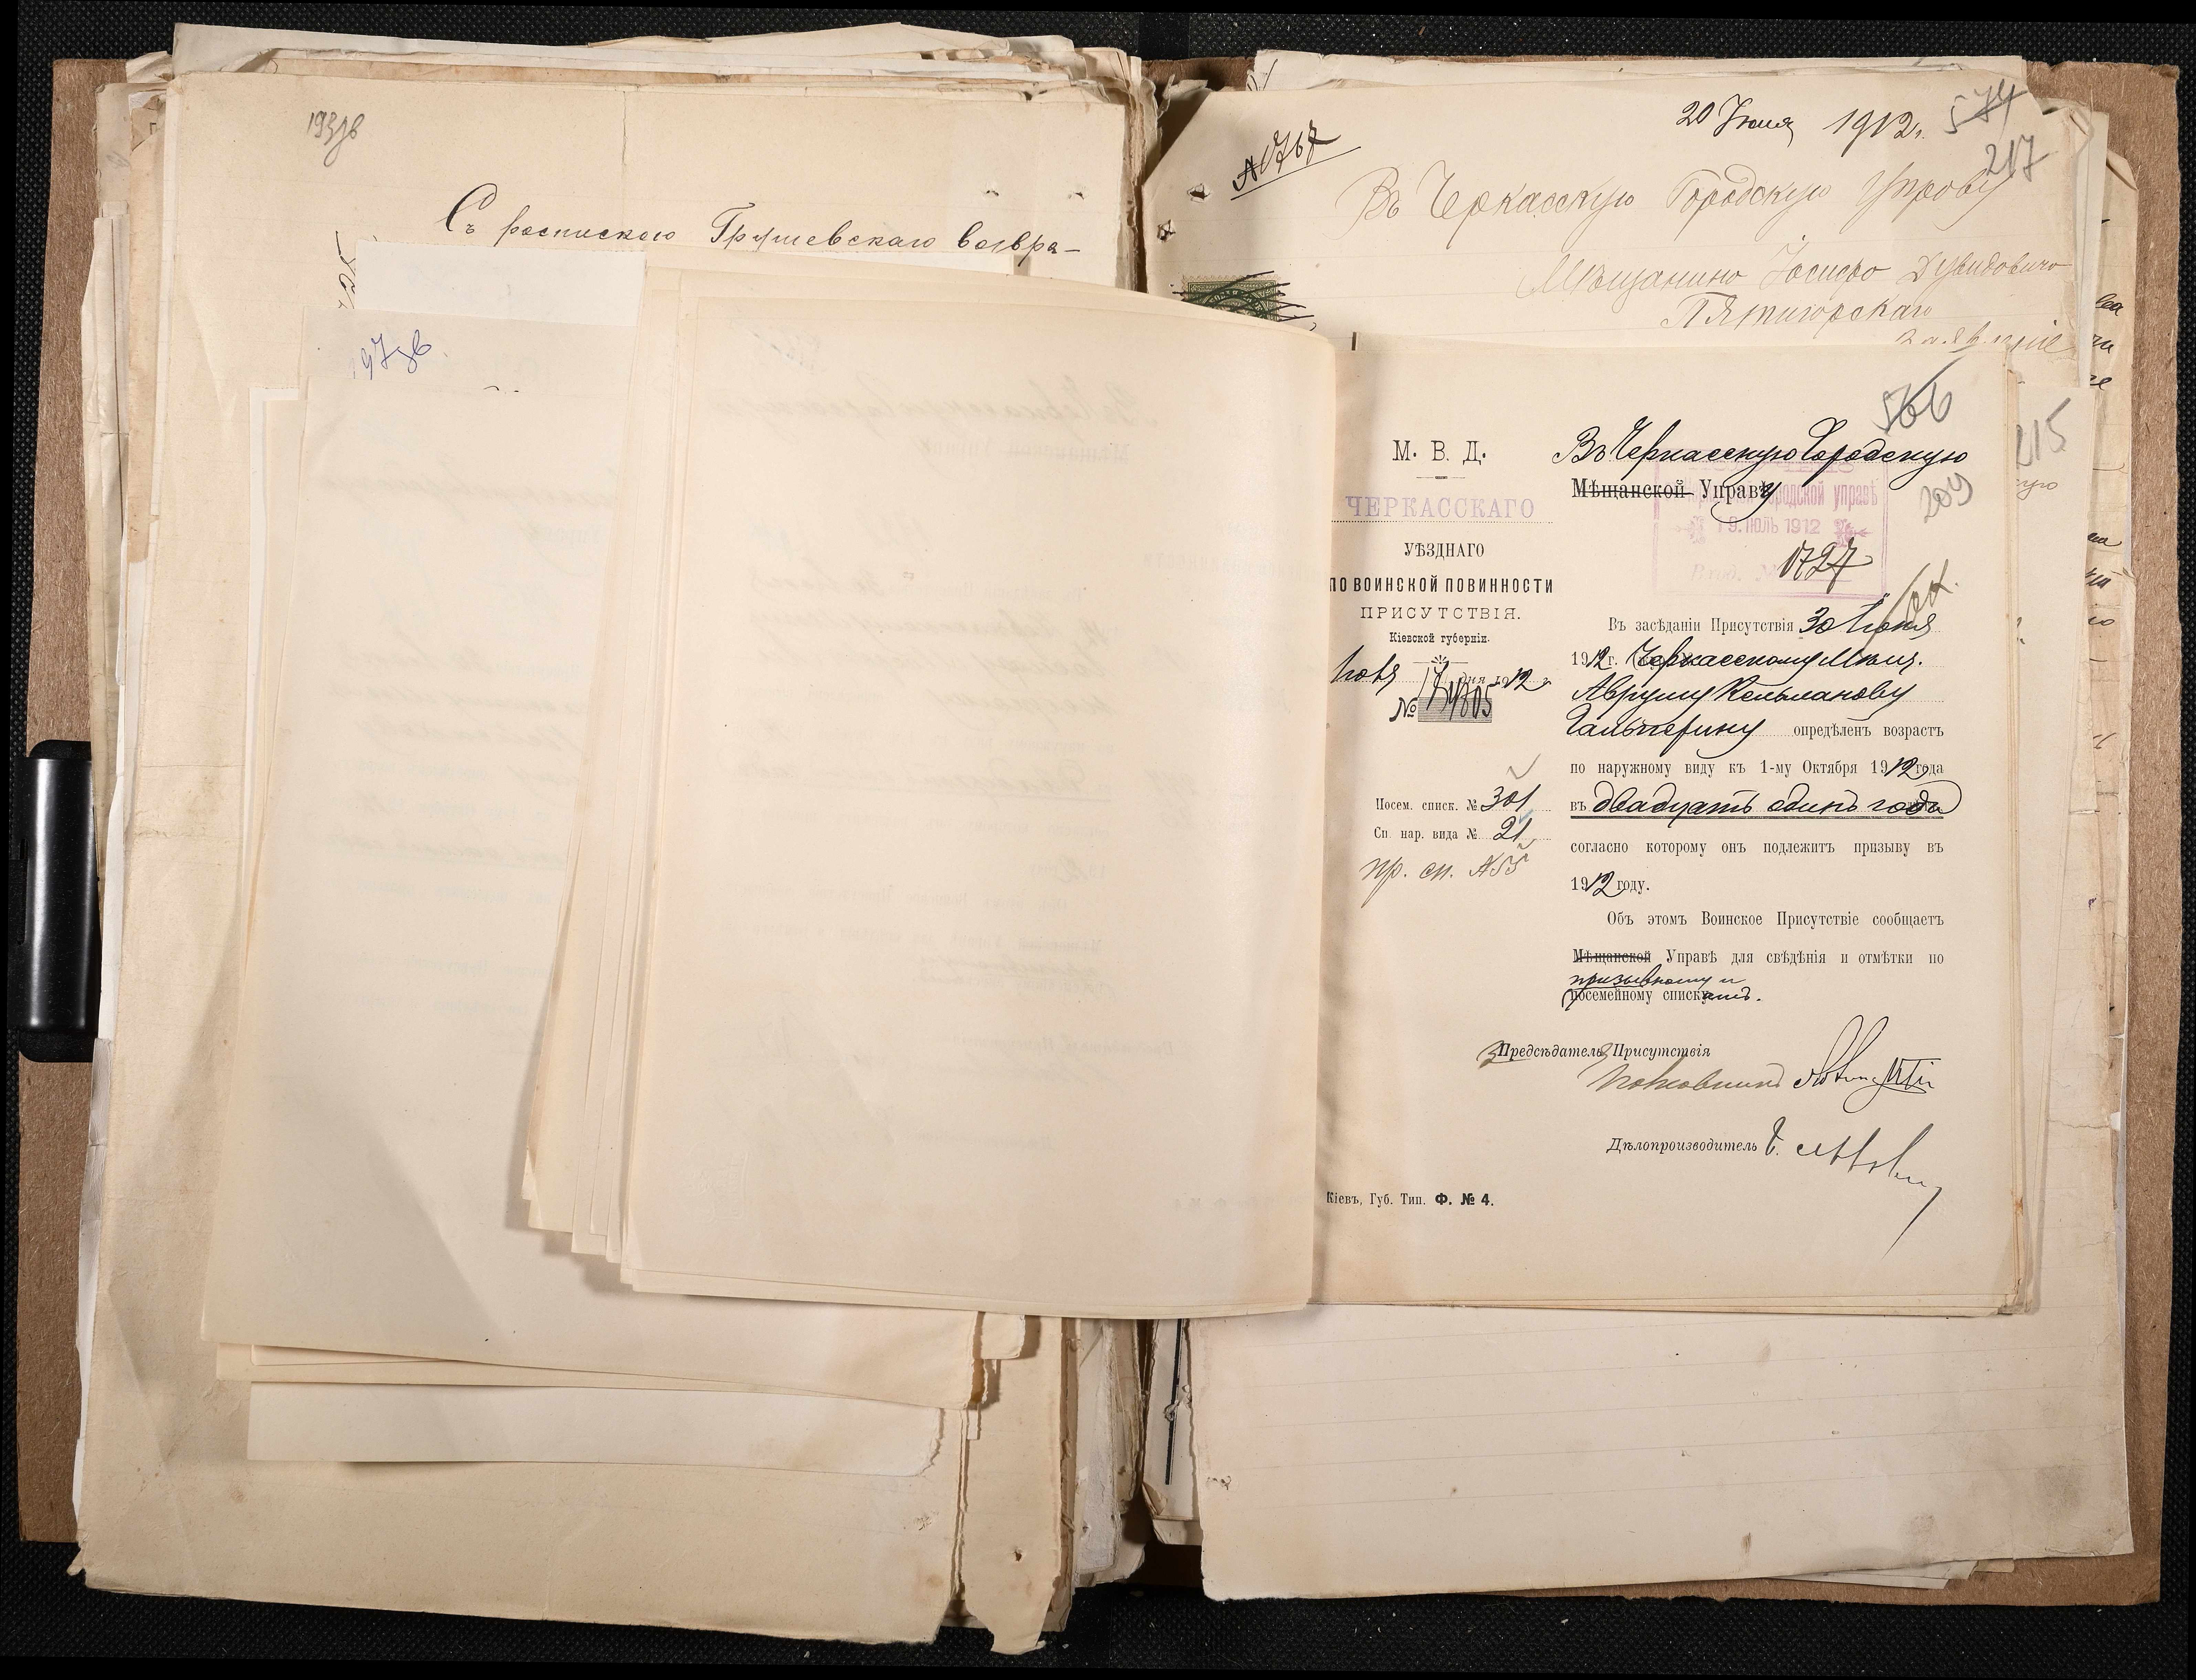 193зв
Съ роспискою Грушевскаго возвра-
197зв.
20 Іюля 1912 г.
574
217
№1767
Въ Черкасскую Городскую Управу
Мѣщанина Іосифа Дувидовича
Пятигорскаго
Заявленіе
215
566
209
М. В. Д.
ЧЕРКАССКАГО
УѢЗДНАГО
ПО ВОИНСКОЙ ПОВИННОСТИ
ПРИСУТСТВІЯ.
Кіевской губерніи.
Іюля 17 дня 1912 г.
№ 14805
Посем. списк. № 301
Сп. нар. вида № 21
пр. сп. №55
Въ Черкасскую Городскую
Мѣщанской Управу
городской управѣ
19. ІЮЛЬ 1912
Вход. № 1727
Въ засѣданіи Присутствія 30 Іюня
1912 г. Черкасскому Мѣщ.
Авруму Кельманову
Гальперину опредѣленъ возрастъ
по наружному виду къ 1-му Октября 1912 года
въ двадцать одинъ годъ
согласно которому онъ подлежитъ призыву въ
1912 году.
Объ этомъ Воинское Присутствіе сообщаетъ
Мѣщанской Управѣ для свѣдѣнія и отмѣтки по
призывному и
посемейному спискамъ.
Предсѣдатель Присутствія
Полковникъ
Дѣлопроизводитель
Кіевъ, Губ. Тип. Ф. № 4.